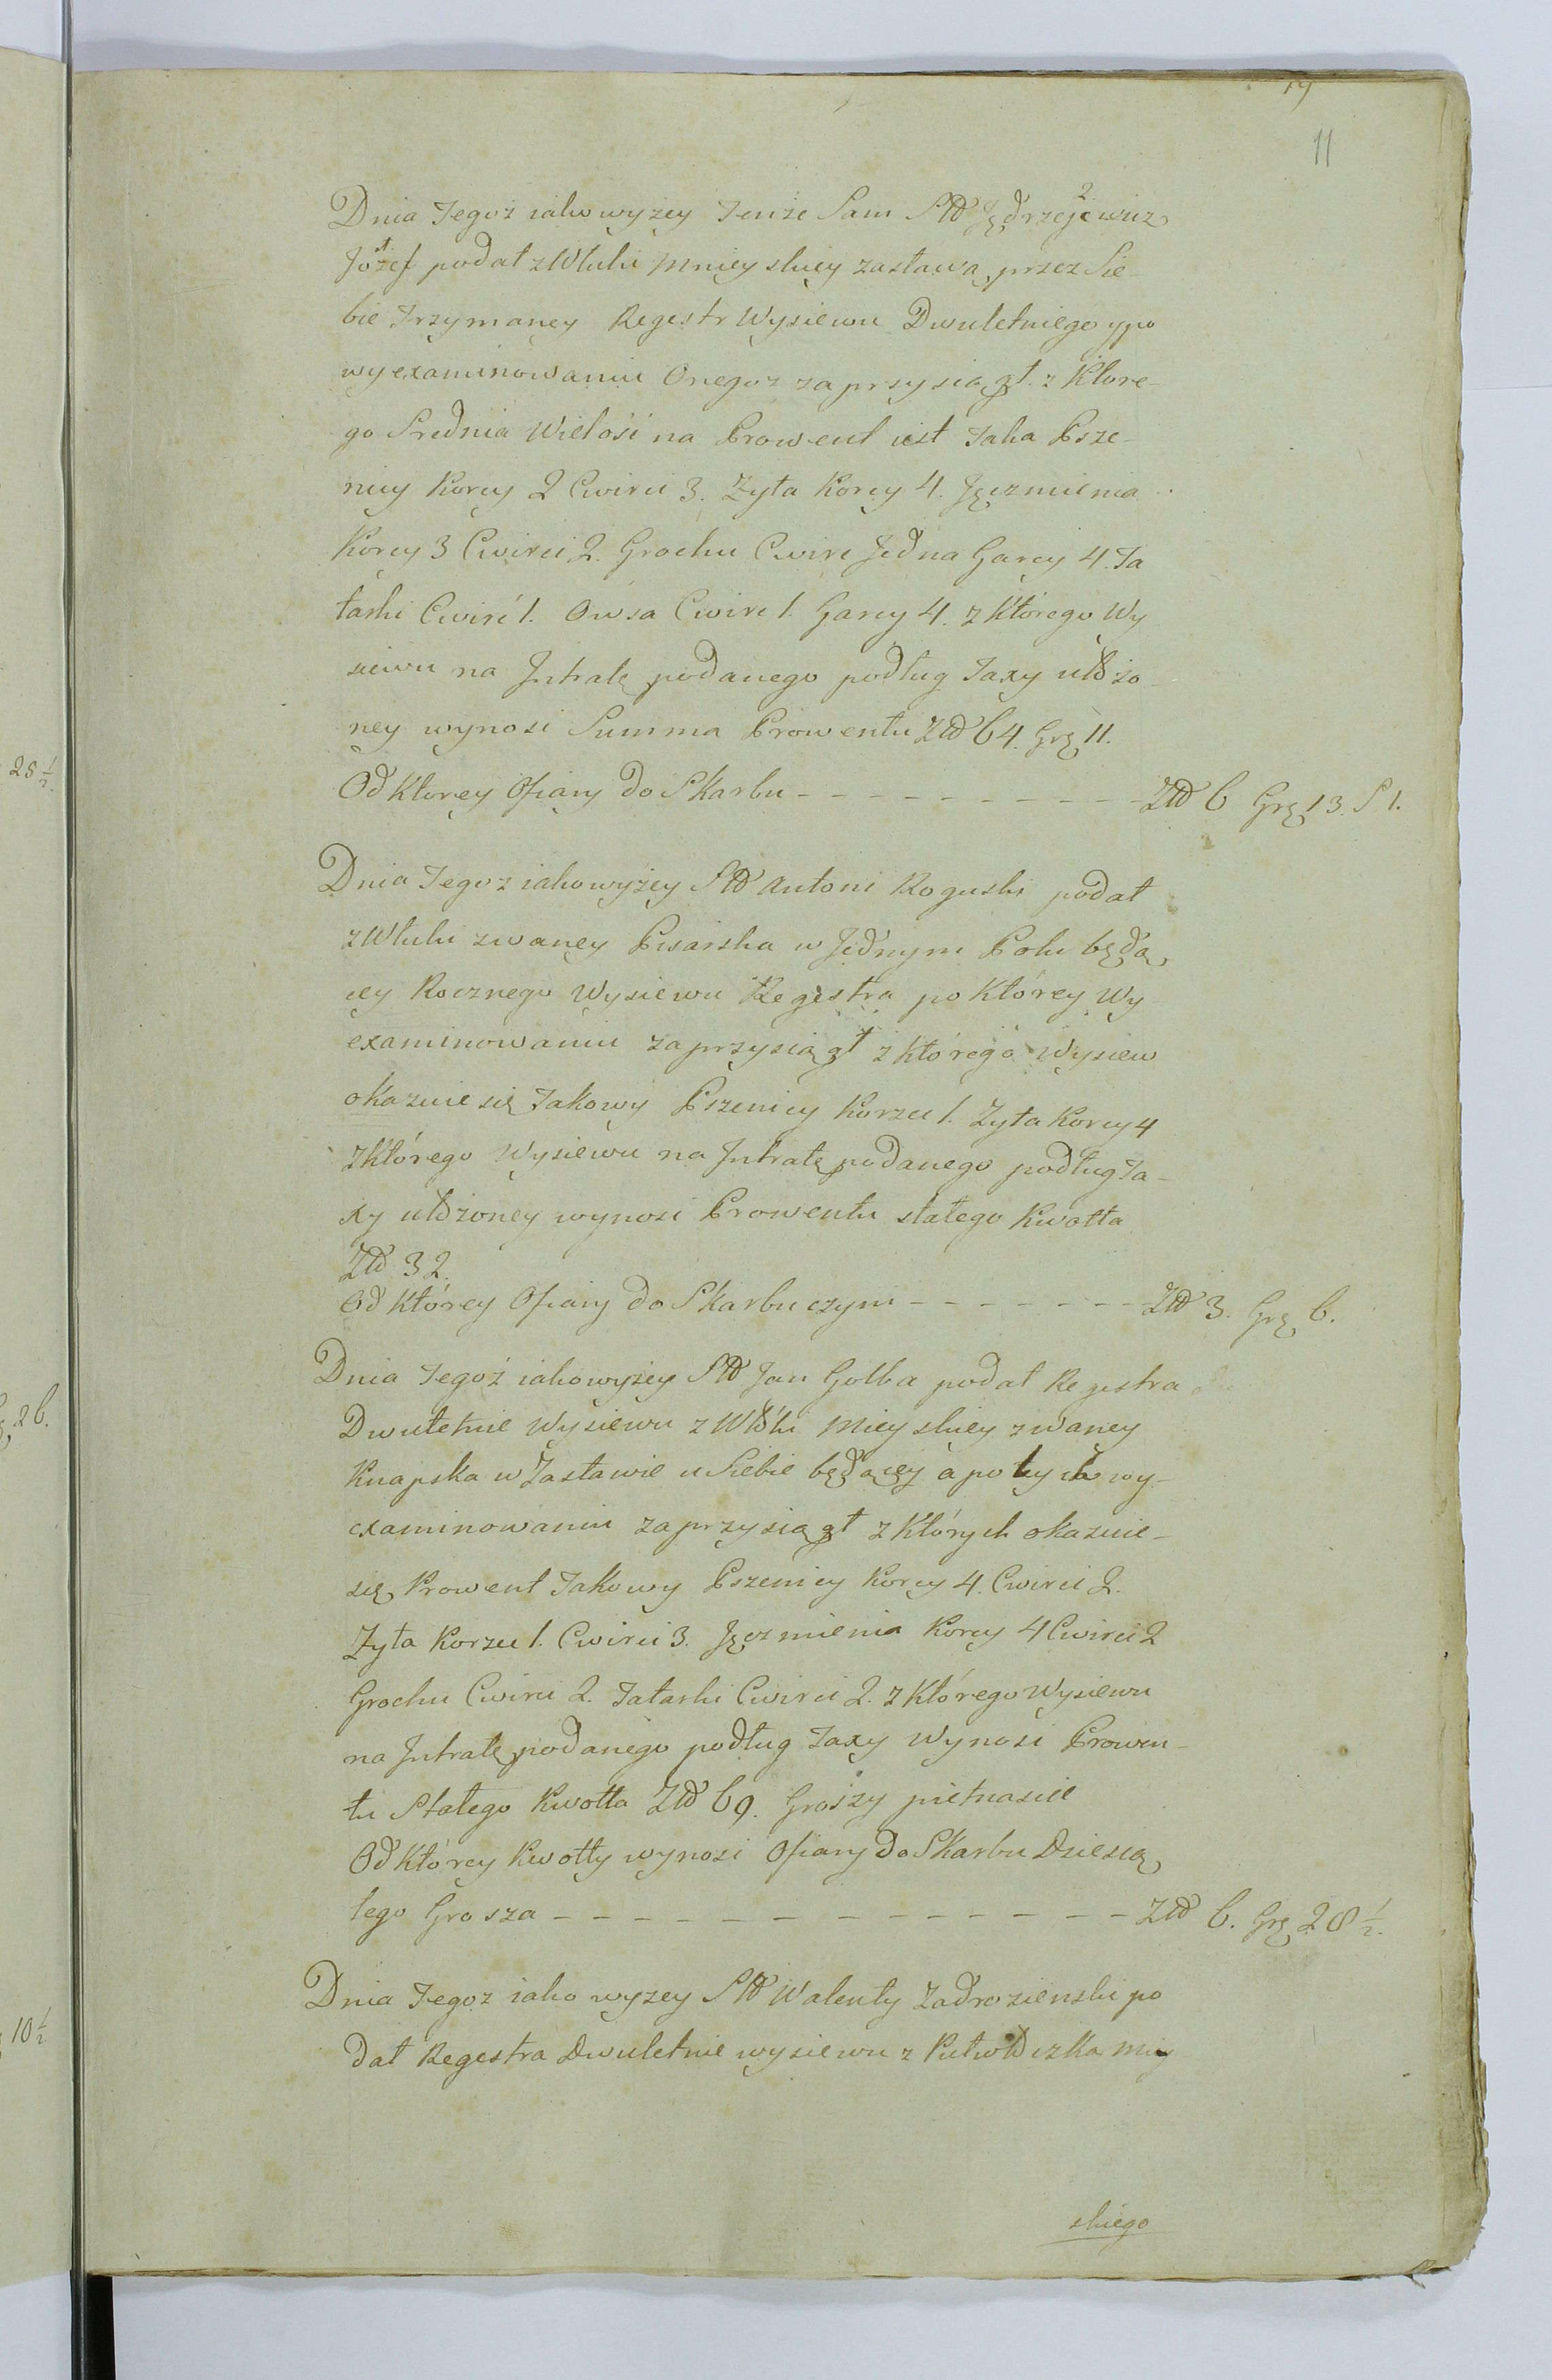 11
Dnia Tegoż iako wyżey Tenże Sam Sttd Jędrzejewicz
Jozef podał z Włuki Mnieyskiey zastawą przez Sie-
bie Trzymaney Regestr Wysiewu Dwuletniego y po
wyexaminowaniu Onegoż zaprzysiągł. z Które-
go Srednia Wielość na Prowent iest Taka Psze-
nicy Korcy 2 Cwirci 3. Zyta Korcy 4. Jęczmienia
Korcy 3 Cwirci 2. Grochu Cwirc Jedna Garcy 4. Ta
tarki Cwirć 1. Owsa Cwirc 1. Garcy 4. z Którego Wy
siewu na Intratę podanego podług Taxy ułożo-
ney wynosi Summa Prowentu Złł 64. Grę 11.
Od Ktorey Ofiary do Skarbu - - - - - - - - - - Złł 6 Grę 13. S 1.
Dnia Tegoż iako wyżey Sttd Antoni Roguski podał
z Włuki zwaney Pisarska w Jednym Polu będą
cey Rocznego Wysiewu Regestra po Którey Wy-
examinowaniu zaprzysiągł z którego Wysiew
okazuie się Takowy Pszenicy Korzec 1. Zyta Korcy 4
z Którego Wysiewu na Intratę podanego podług Ta-
xy ułożoney wynosi Prowentu stałego Kwotta
Złł 32.
Od Którey Ofiary do Skarbu czyni - - - - - - - Złł 3. Grę 6.
Dnia Tegoż iako wyżey Sttd Jan Golba podał Regestra
Dwuletnie Wysiewu z Włóki Mieyskiey zwaney
Knapska w Zastawie u Siebie będącey a po tych wy-
examinowaniu zaprzysiągł z Których okazuie-
się Prowent Takowy Pszenicy Korcy 4. Cwirci 2.
Zyta Korzec 1. Cwirci 3. Jęczmienia Korcy 4 Cwirci 2
Grochu Cwirci 2. Tatarki Cwirci 2. z Którego Wysiewu
na Intratę podanego podług Taxy Wynosi Prowen-
tu Stałego Kwotta Złł 69. Groszy pietnascie
Od Którey Kwotty wynosi Ofiary do Skarbu Dziesią
tego Grosza - - - - - - - - - - - - - - Złł 6. Grę 28 1/2.
Dnia Tegoż iako wyzey Sttd Walenty Zadrozienski po
dał Regestra Dwuletnie wysiewu z Pułwłoczka Miey
skiego
28 1/2.
26.
10 1/2